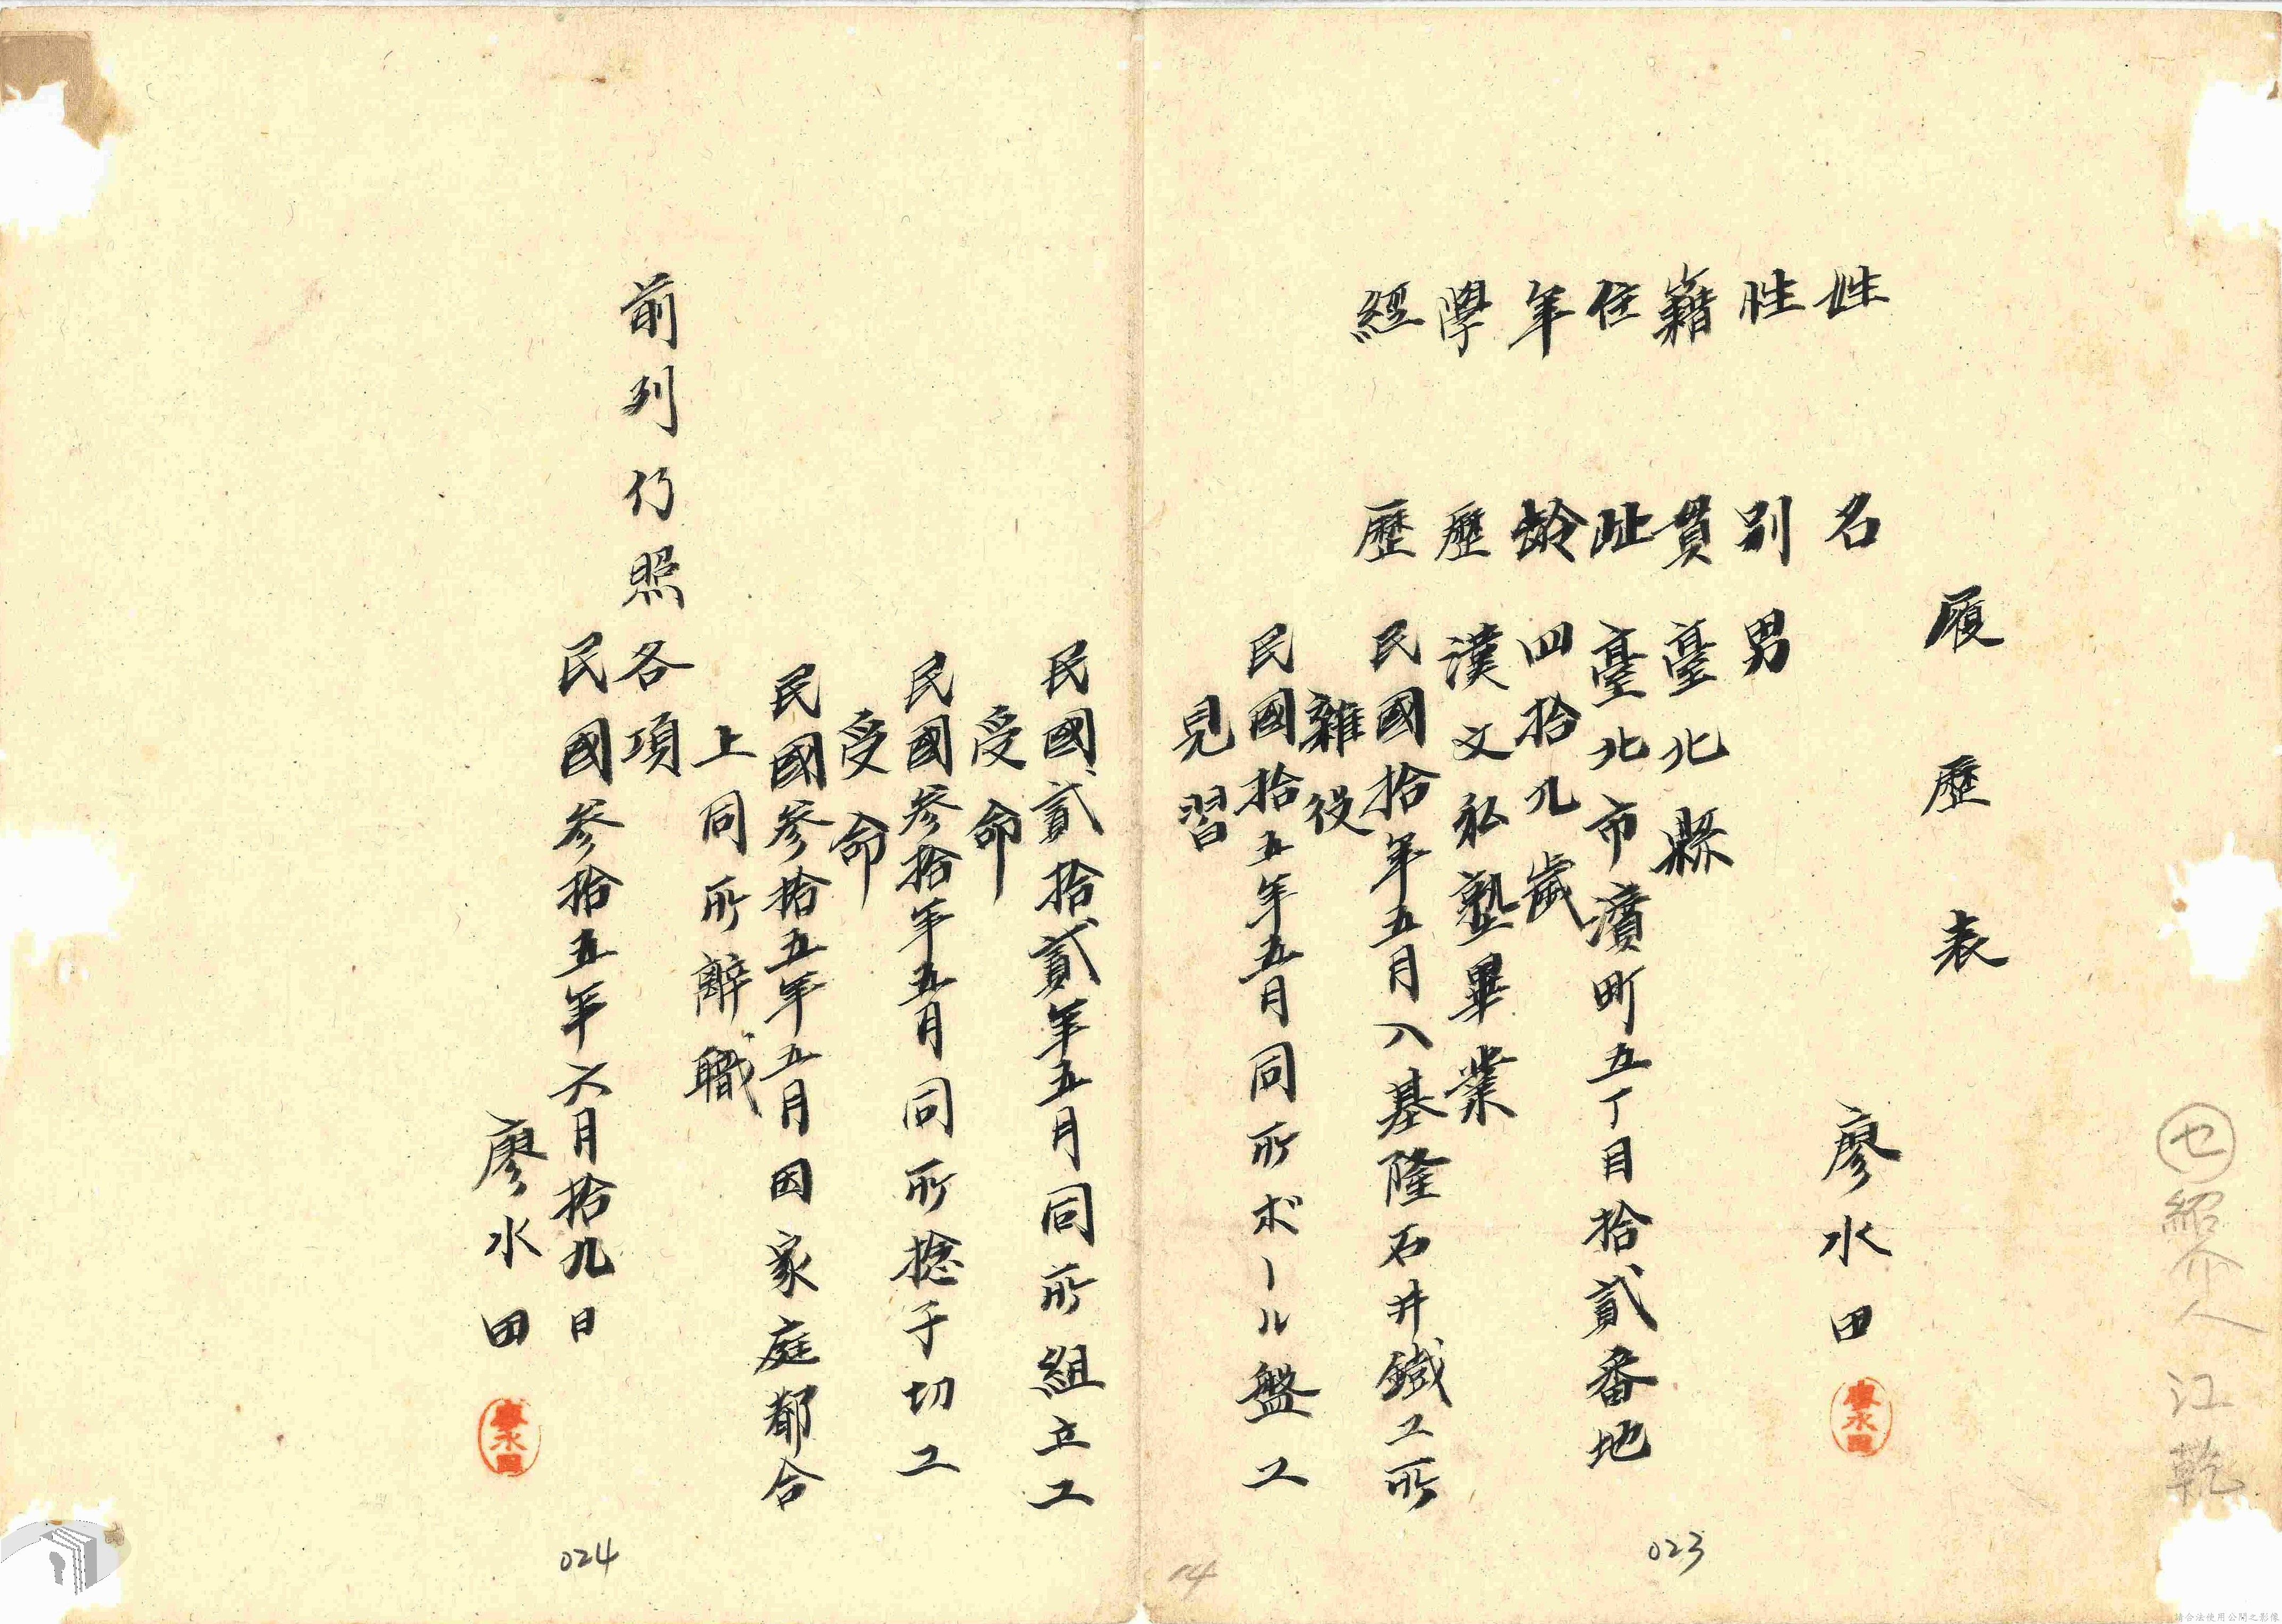 履歷表
姓名 廖水田
廖水田
性別 男
籍貫 臺北縣
住址 臺北市濱町五丁目拾貳番地
年齡 四拾九歲
學歷 漢文私塾畢業
經歷 民國拾年五月入基隆石井鐵工所
雜役
民國拾五年五月同所ボール盤工
見習
民國貳拾貳年五月同所組立工
受命
民國參拾年五月同所捻子切工
受命
民國參拾五年五月因家庭都合
上同所辭職
前列仍照各項
民國參拾五年六月拾九日
廖水田
廖水田
紹介人 江乾
023
14
024
請合法使用公開之影像